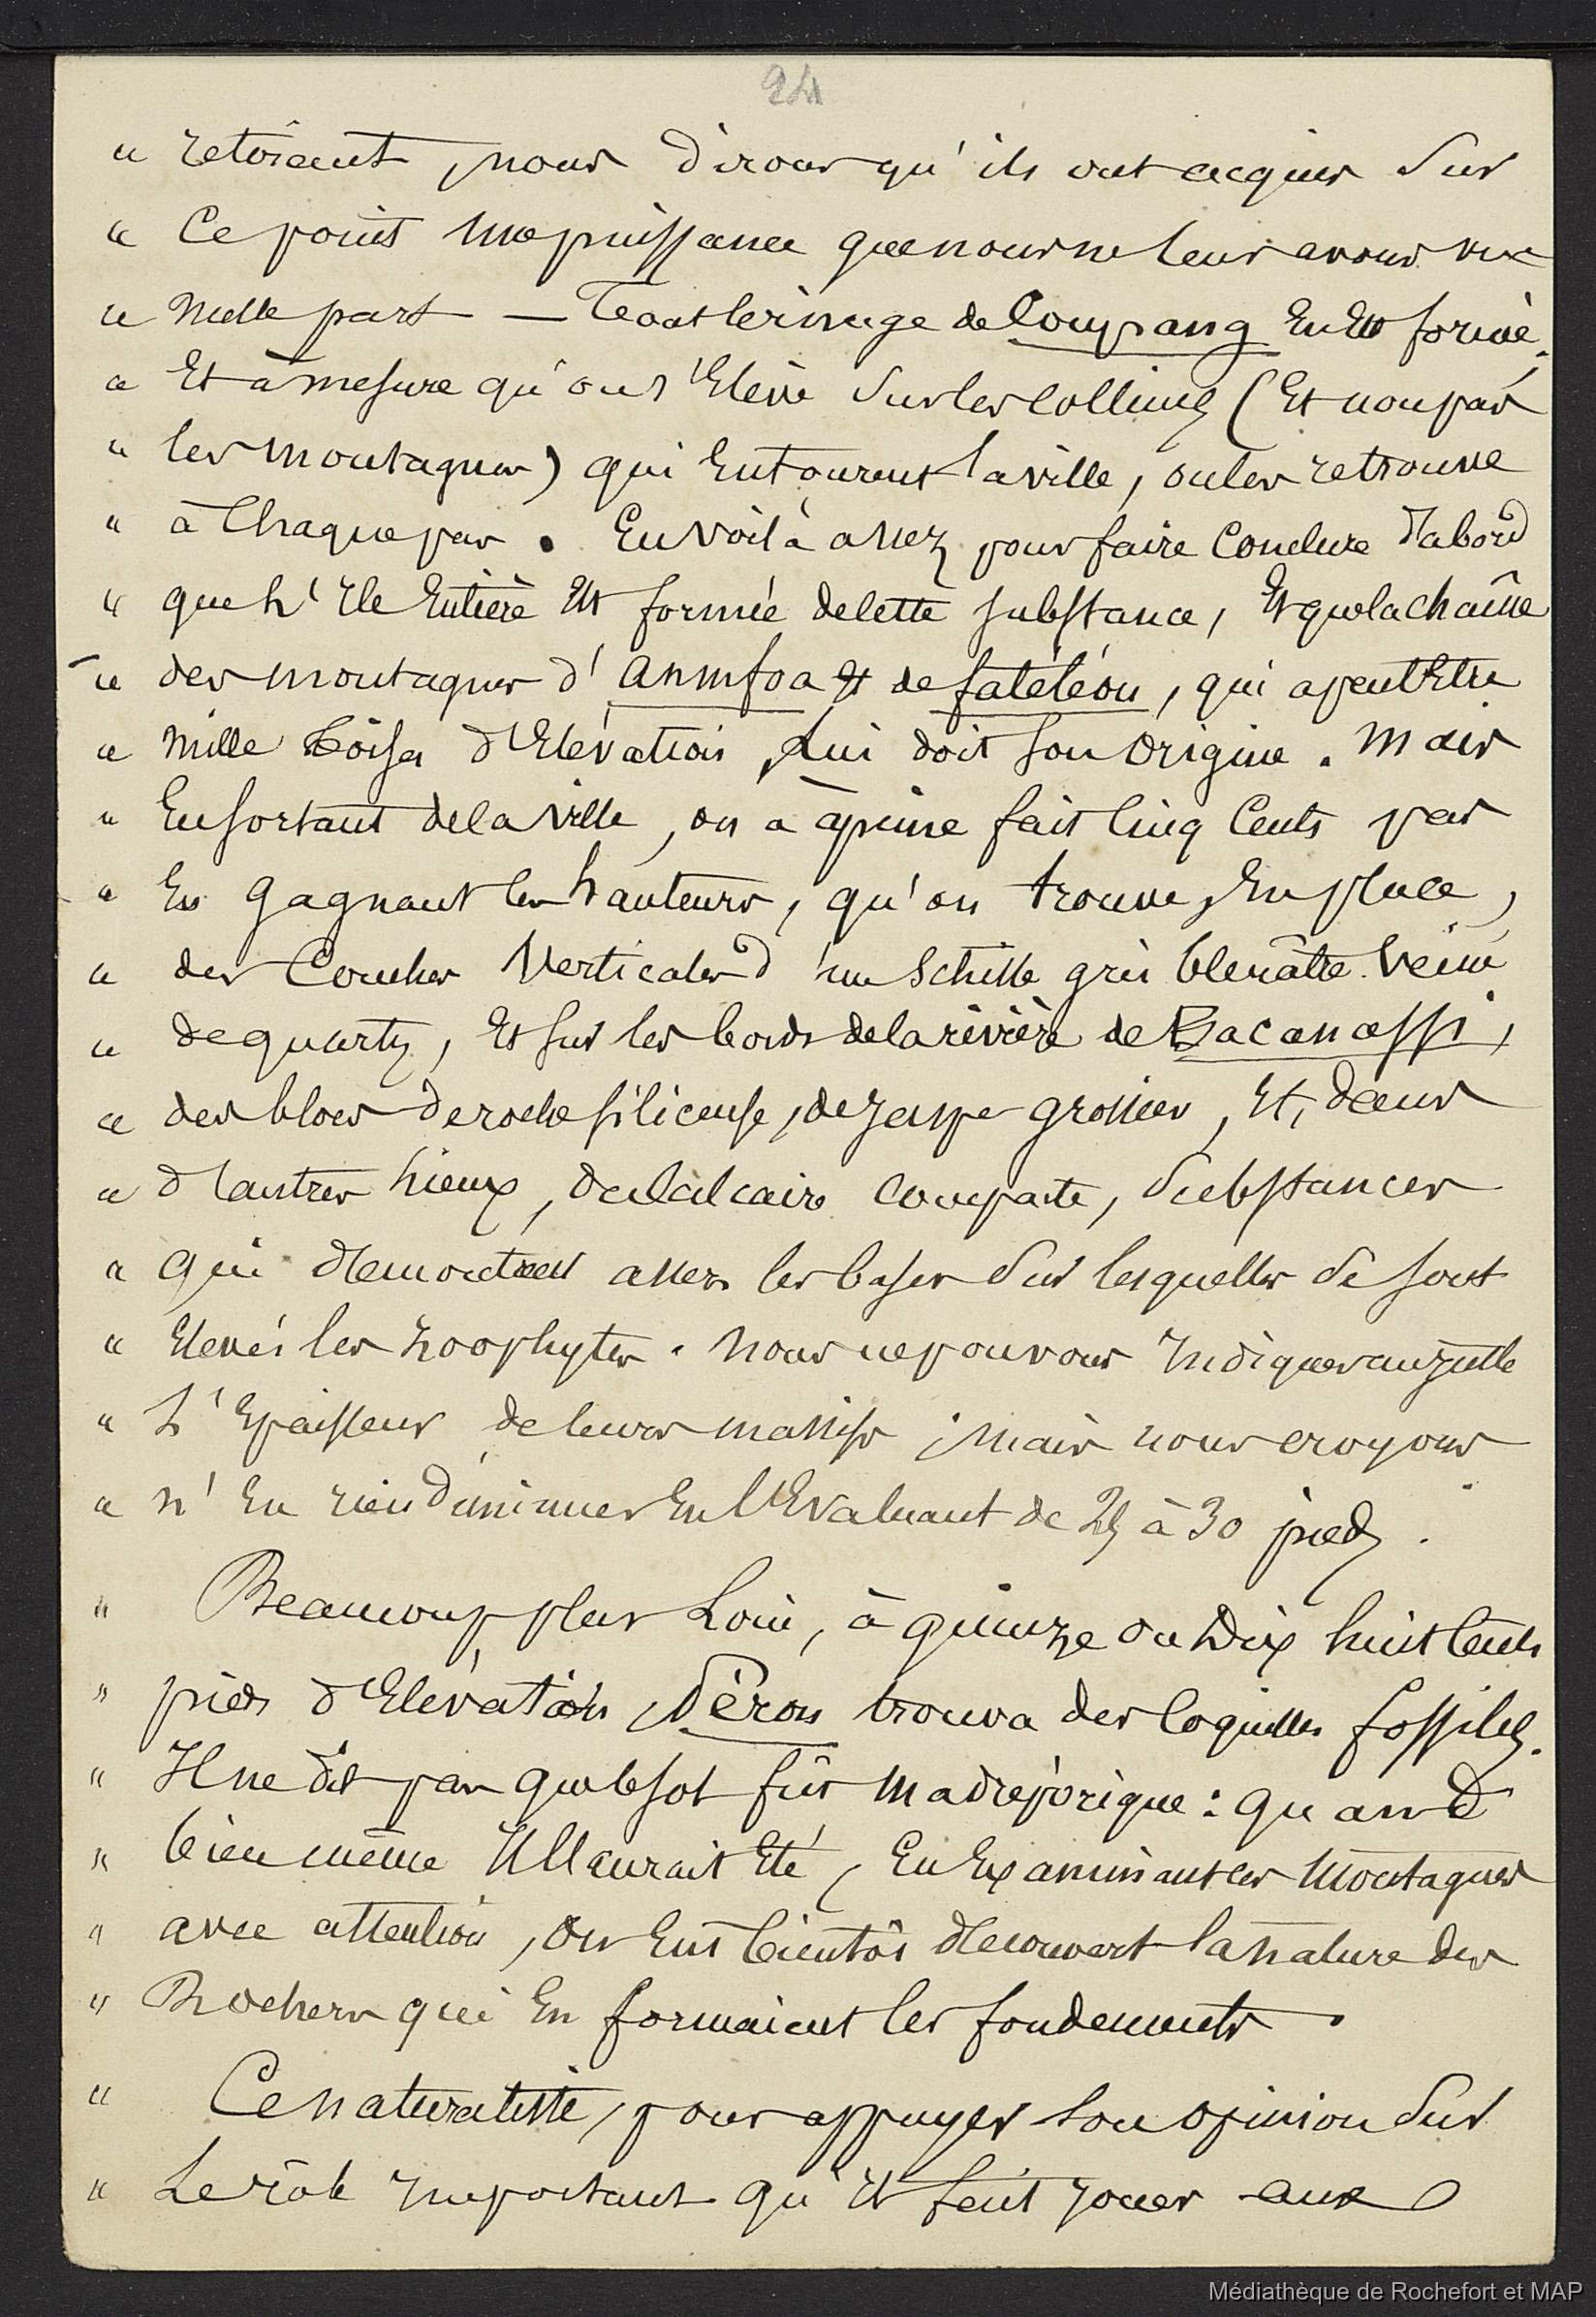 24
" retoient, nous dirons qu'ils ont acquis sur
" Ce point une puissance que nous ne leur avons vue
" nulle part — Tout le rivage de Coupang En Est formé,
" Et à mesure qu'on s'Elève sur les collines (Et non pas
" les montagnes) qui Entourent la ville, on les retrouve
" à Chaque pas. En voilà assez pour faire Conclure d'abord
" que L'Ile Entière Est formée de cette substance, Et que la chaîne
" des montagnes d'Anmfoa Et de fatéléou, qui a peut Etre
" mille toises d'Elévation, lui doit son origine. Mais
" En sortant de la ville, on a à peine fait Cinq Cents pas
" En gagnant les hauteurs, qu'on trouve, En place,
" des Couches Verticales d'un Schiste gris bleuâtre veiné
" de quartz, Et sur les bords de la rivière de Bacanassi,
" des blocs de roche siliceuse, de jaspe grossier, Et, dans
" d'autres Lieux, de Calcaire Compacte, Substances
" qui démontrent assez les bases sur lesquelles se sont
" Elevés les zoophytes. Nous ne pouvons Indiquer au juste
" L'Epaisseur de leurs masses ; mais nous croyons
" n'En rien diminuer En l'Evaluant de 25 à 30 pieds.
" Beaucoup plus Loin, à quinze ou Dix huit Cents
" pieds d'Elévation, Péron trouva des Coquilles fossiles.
" Il ne dit pas que le sol fût madréporique : quand
" bien même Il l'aurait Eté, En Examinant les Montagnes
" avec attention, on Eut bientôt découvert la nature des
" Rochers qui En formaient les fondements.
" Ce naturaliste, pour appuyer son opinion Sur
" Le rôle Important qu'Il fait jouer aux
Médiathèque de Rochefort et MAP